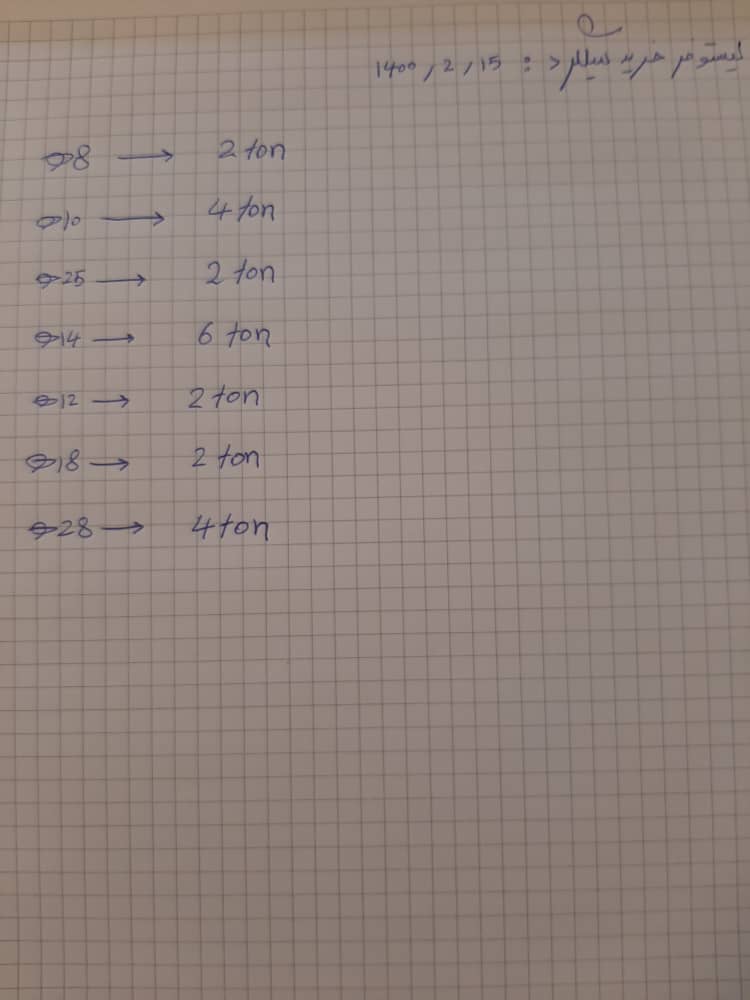 لیستوفر خرید میلگرد : 1400,2,15
Φ8 → 2 ton
Φ10 → 4 ton
Φ25 → 2 ton
Φ14 → 6 ton
Φ12 → 2 ton
Φ18 → 2 ton
Φ28 → 4 ton